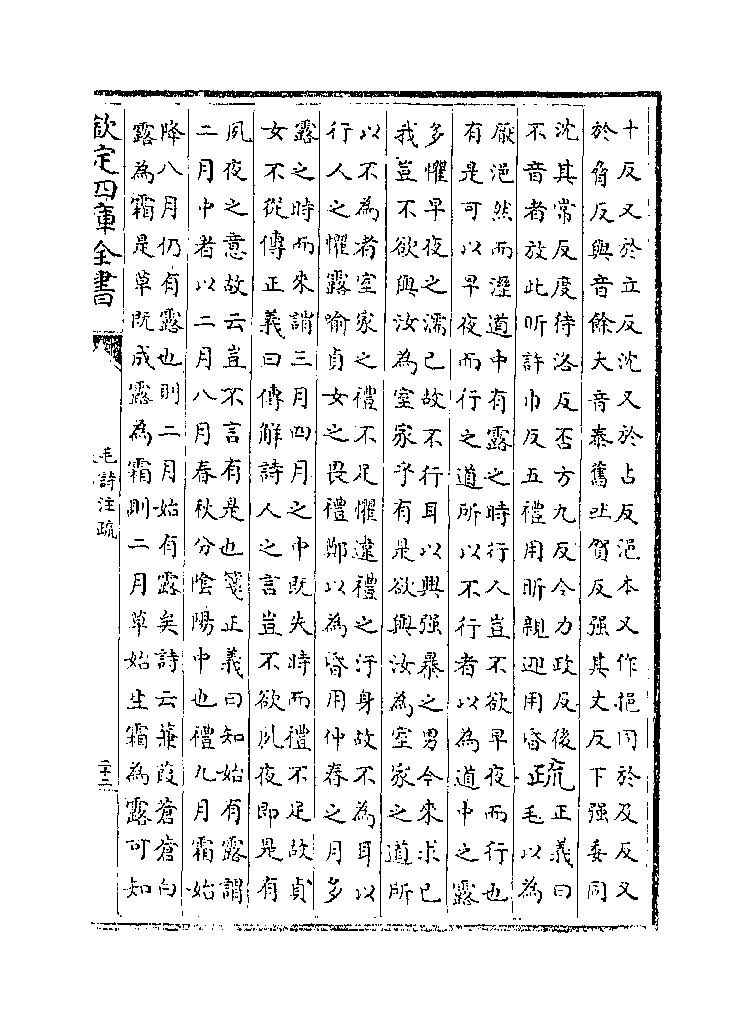 十反又於立反沈又於占反浥本又作挹同於及反又
於脅反與音餘大音泰舊吐賀反强其丈反下强委同
沈其常反度待洛反否方九反令力政反後
不音者放此昕許巾反五禮用昕親迎用昏
疏
正義曰
毛以為
厭浥然而溼道中有露之時行人豈不欲早夜而行也
有是可以早夜而行之道所以不行者以為道中之露
多懼早夜之濡已故不行耳以興强暴之男今來求已
我豈不欲與汝為室家乎有是欲與汝為室家之道所
以不為者室家之禮不足懼違禮之汙身故不為耳以
行人之懼露喻貞女之畏禮鄭以為昏用仲春之月多
露之時而來謂三月四月之中既失時而禮不足故貞
女不從傳正義曰傳解詩人之言豈不欲夙夜即是有
夙夜之意故云豈不言有是也箋正義曰知始有露謂
二月中者以二月八月春秋分陰陽中也禮九月霜始
降八月仍有露也則二月始有露矣詩云蒹葭蒼蒼白
露為霜是草既成露為霜則二月草始生霜為露可知
欽定四庫全書
毛詩注疏
二十二